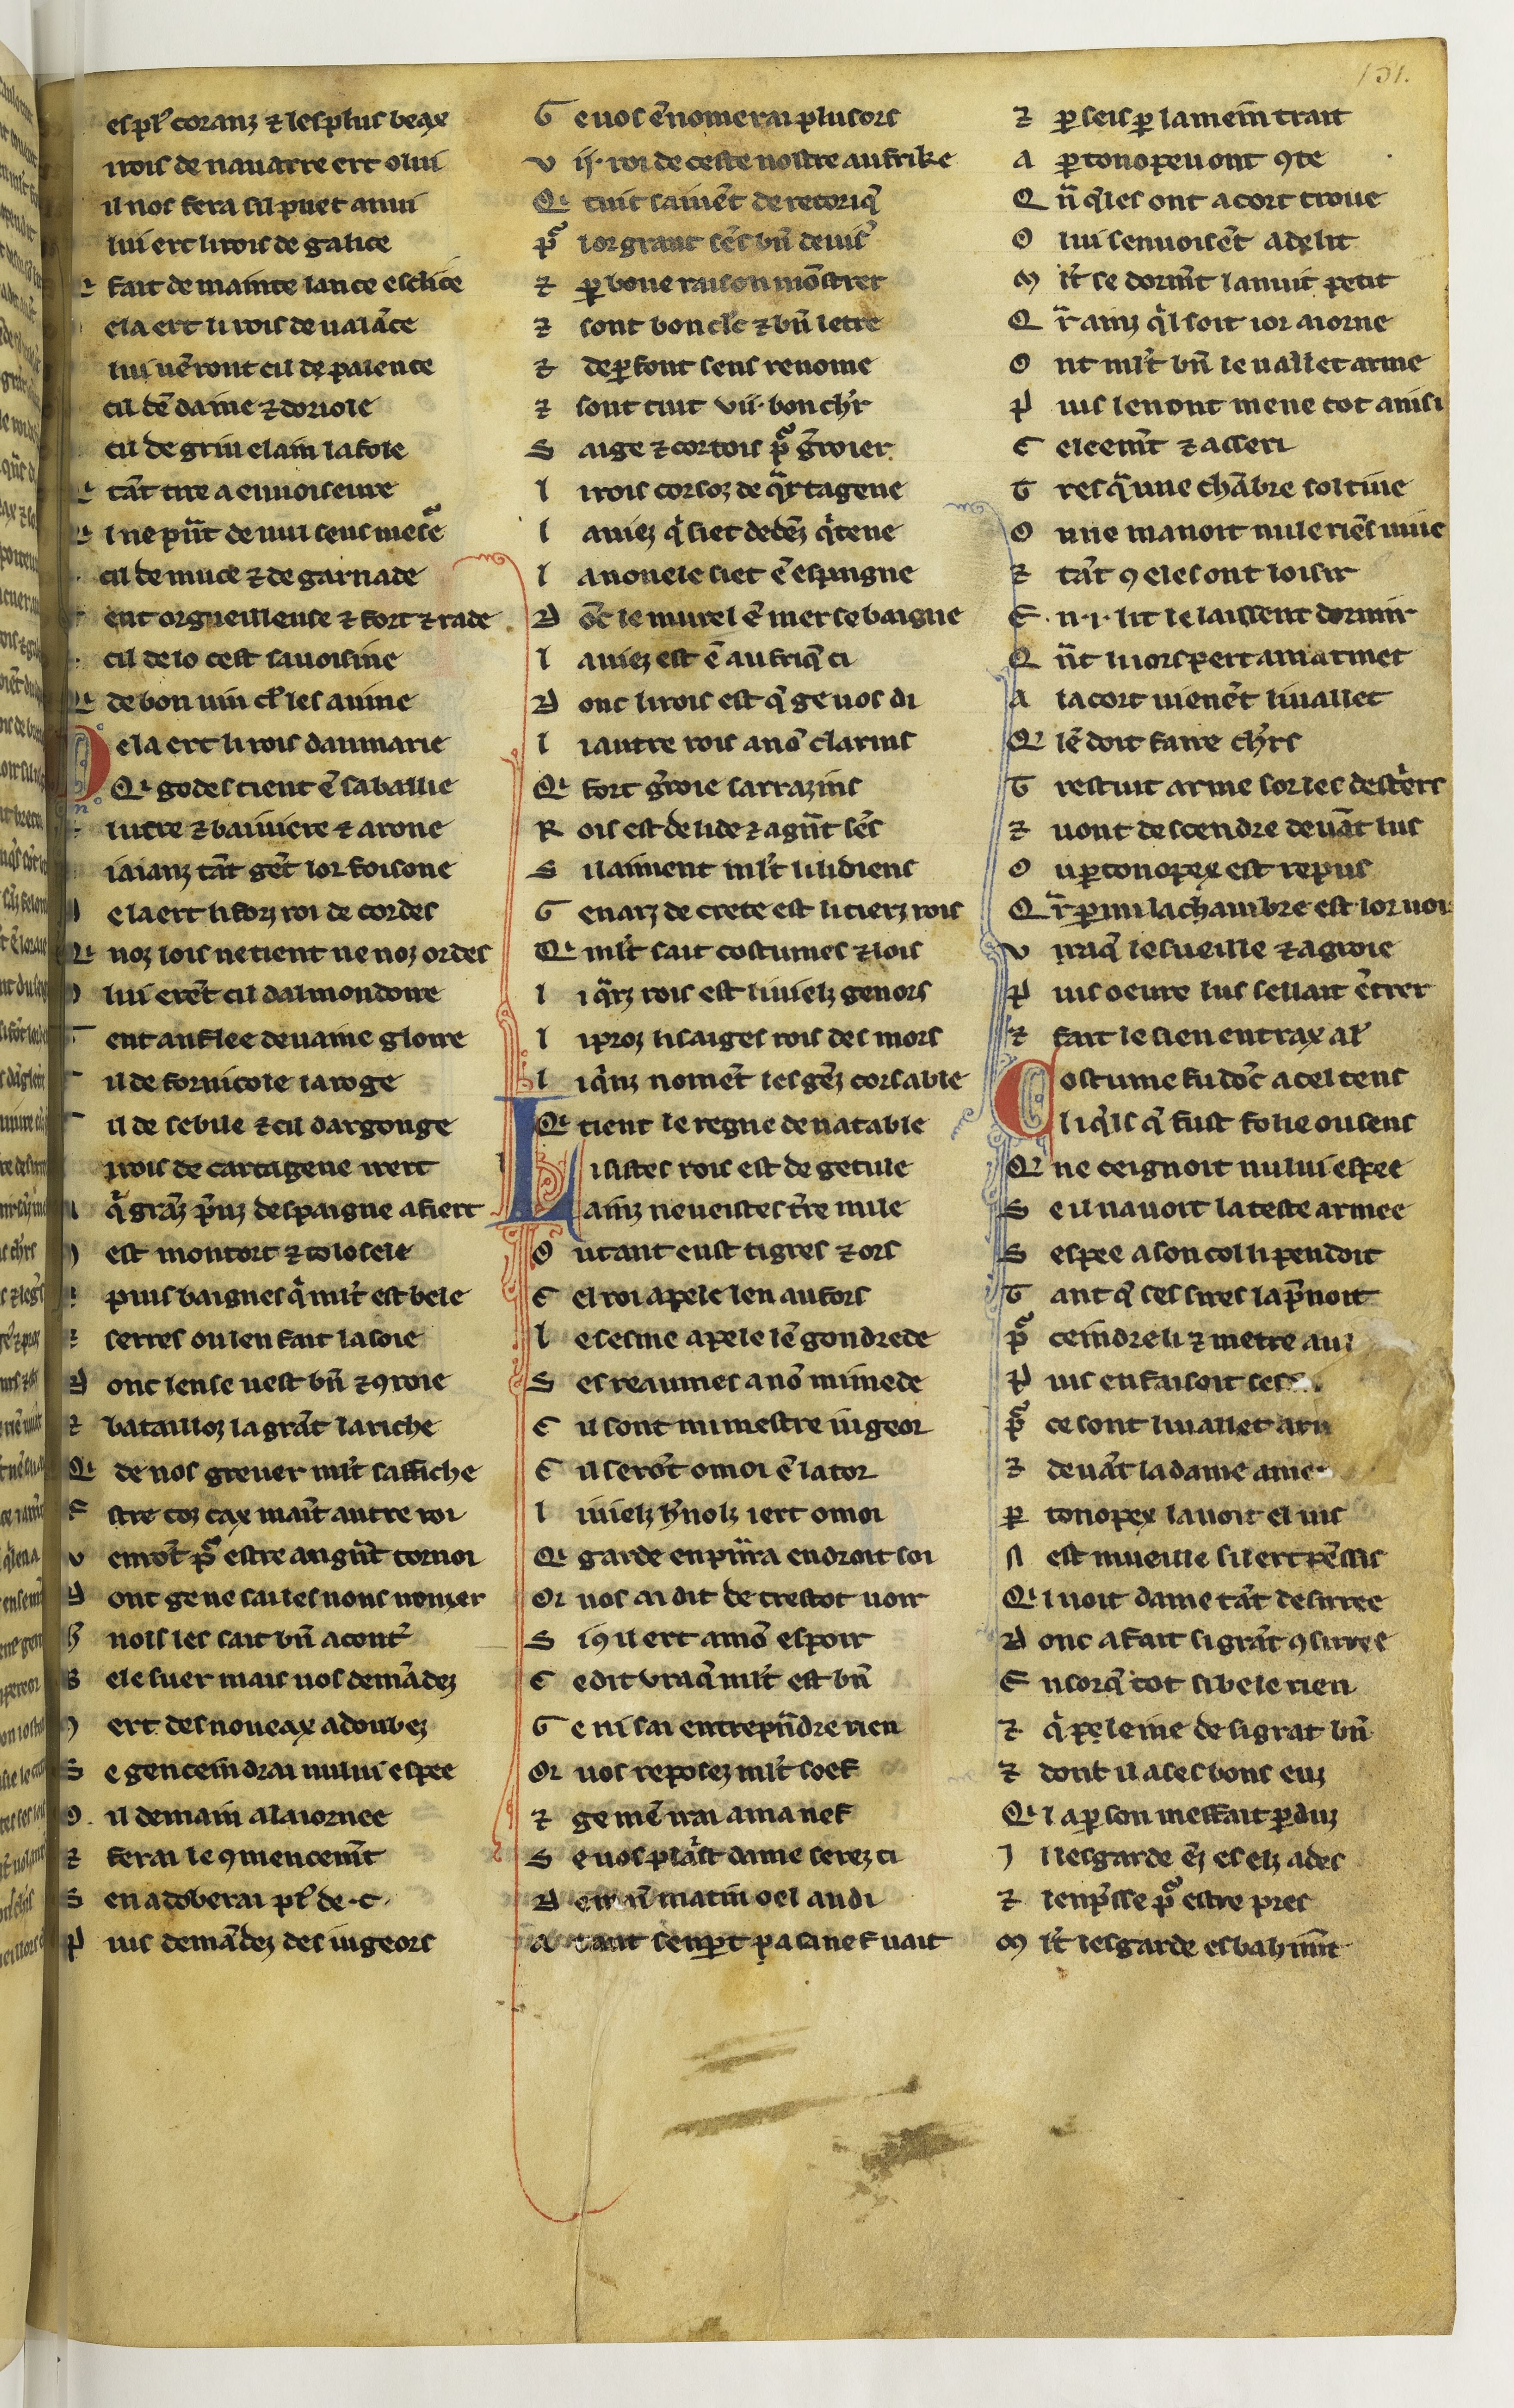 151.
es pl' coranz ⁊ les plus beax
irois de nauarre ert o lui
il nos fera sil puet anui
lui ert li rois de galice
fait de mainte lance esclice
ela ert li rois de ualāce
lui uēront cil de palence
cil dē daine ⁊ doriole
cil de griu elain la fole
tāt tire a enuoiseure
cil de muce ⁊ de garnade
ent orgueilleuse ⁊ fort ⁊ rade
cil de lo cest sauoisine
de bon uin
Dela ert li rois daumarie
Qi godes tient ē sa baillie
lucre ⁊ bauiuere ⁊ arone
iaianz tāt gēt lor foisone
e la ert li forz roi de cordes
Qi noz lois ne tient ne noz ordes
lui erēt cil dalmondoire
ent aufilee de uaine gloire
il de fornicole la roge
il de sebile ⁊ cil dargouge
irois de cartagene iert
q̄ grāz puiz despaigne afiert
est montort ⁊ tolosele
puis baignes q̄ ml't est bele
⁊ serres ou len fait la soie
D onc len se uest bn̄ ⁊ ꝯroie
⁊ batailloz la grāt la riche
Qi de nos greuer ml't saffiche
E stre toz cax maīt autre roi
V enrōt pͣ estre au gn̄t tornoi
D ont ge ne sai les nons nomer
h̄ nois les sait bn̄ a cont'
B ele suer mais uos demādez
ert des noueax adoubez
S e gen ceindrai nului espee
O il demain a la iornee
⁊ ferai le ꝯmencem̄t
S en adoberai pl' de .c.
P uis demādez des iugeors
G e uos ē nomerai plusors
V ii. roi de ceste nostre aufrike
Qi tuit saiuēt de retoriq̄
pͣ lor grant sēs bn̄ deuis'
⁊ ꝑ bone raison mōstrer
⁊ sont bon cl'c ⁊ bn̄ letre
⁊ de ꝑfont sens renome
⁊ sont tuit vii. bon ch'r
S aige ⁊ cortois pͣ ḡroier
l i rois corsoz de q̄rtagene
l auiez q̄ siet dedēz q̄tene
l a nouele siet ē espaigne
D ōt le murel ē mer se baigne
l auiez est ē aufriq̄ ci
D onc li rois est q̄ ge uos di
l i autre rois a nō clarins
Qi fort ḡroie sarrazins
R ois est de lide ⁊ a gn̄t sēs
S il aiment ml't li lidiens
G enarz de crete est li tierz rois
Qi ml't sait costumes ⁊ lois
l i q̄rz rois est li uielz genors
l i proz li saiges rois des mors
l i q̄nz nomēt les gēz corsable
Qi tient le regne de natable
L i sistes rois est de getule
l ainz ne ueistes t're nule
O u tant eust tigres ⁊ ors
C el roi apele len aufors
l e sesme apele lē gondrede
S es reaumes a nō mimede
C il sont mi mestre iugeor
C il serōt o moi ē la tor
l i uielz h̄nolz iert o moi
Qi garde enp̄nra endroit soi
Or uos ai dit de trestot uoir
S i ꝯ il ert a mō espoir
C e dit vraq̄ ml't est bn̄
G e ni sai entrep̄ndre rien
Or uos reposez ml't soef
⁊ ge mē irai a ma nef
S e uos plāist dame serez ci
D emain matin oel au di
A tant sen ꝑt ꝑ a sa nef uait
⁊ ꝑ seis ꝑ la mein trait
A ꝑtonopeu ont ꝯte
Q n̄ q̄les ont a cort troue
O lui senuoisēt a delit
M l't se dormēt la nuit petit
Q r̄ ainz q̄l soit ior aiorne
O nt ml't bn̄ le uallet arme
P uis len ont mene tot anisi
C eleem̄t ⁊ a sseri
T resq̄ une chābre soltiue
O u ne manoit nule riēs uiue
⁊ tāt ꝯ eles ont loisir
E n .i. lit le laissent dormir
Q n̄t li iors pert a matinet
A la cort uienēt li uallet
Qi lē doit faire ch'rs
T restuit arme sor les destr'ers
⁊ uont descendre deuāt lus
O u ꝑtonopex est repus
Q r̄ ꝑmi la chambre est lor uoi
V iraq̄ lesueille ⁊ agroie
P uis oeure lus sel lait ētrer
⁊ fait le sien entrax al'
C ostume fu dōc a cel tens
l i q̄ls q̄ fust folie ou sens
Qi ne ceignoit nului espee
S e il nauoit la teste armee
S espee a son col li pendoit
T ant q̄ ses sires la p̄noit
pͣ ceindre li ⁊ metre au
P uis en faisoit ses
pͣ ce sont li uallet arm
⁊ deuāt la dame ame
ꝑ tonopex la uoit el uis
N est mueille sil ert pēssis
Qi uoit dame tāt desirree
D onc a fait si grāt ꝯsirree
E ncorq̄ tot si bele rien
⁊ q̄ pe le ine de si grat bn̄
⁊ dont il a ses bons euz
Qi la ꝑ son meffait ꝑduz
I l lesgarde ēz es elz ades
⁊ len p̄sse pͣ estre pres
M l't lesgarde esbahim̄t